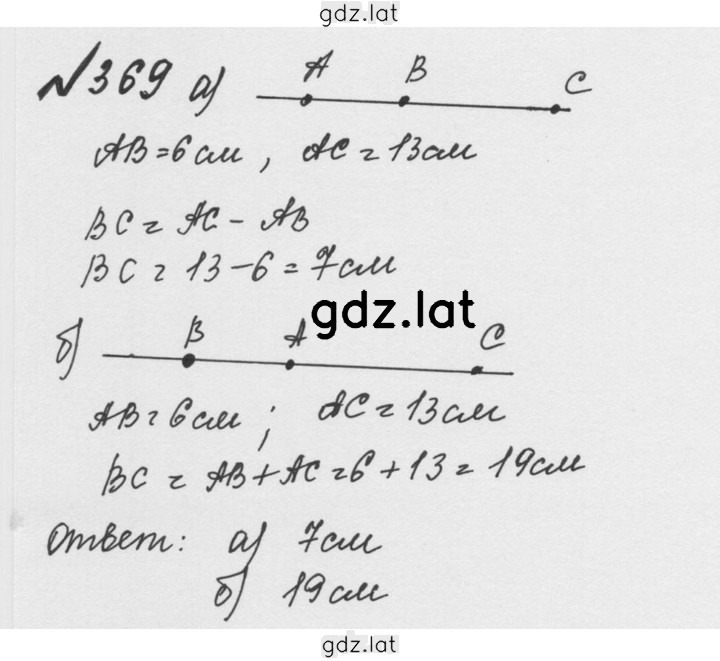 gdz.lat
№369 а) A B C
AB=6см, AC=13см
BC=AC-AB
BC=13-6=7см
gdz.lat
б) B A C
AB=6см; AC=13см
BC=AB+AC=6+13=19см
Ответ: а) 7см
б) 19см
gdz.lat